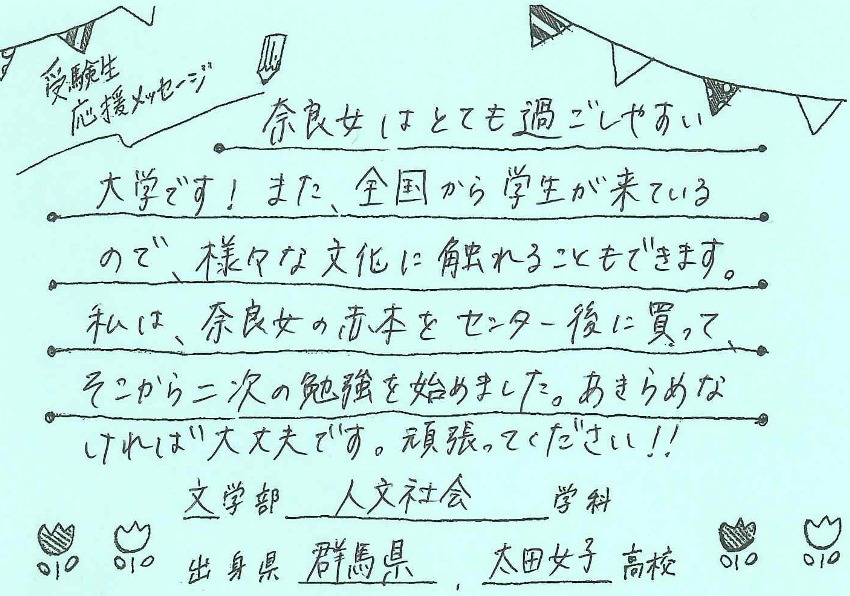 受験生
応援メッセージ
奈良女はとても過ごしやすい
大学です！また、全国から学生が来ている
ので、様々な文化に触れることもできます。
私は、奈良女の赤本をセンター後に買って、
そこから二次の勉強を始めました。あきらめな
ければ大丈夫です。頑張ってください!!
文学部 人文社会 学科
出身県 群馬県 , 太田女子 高校